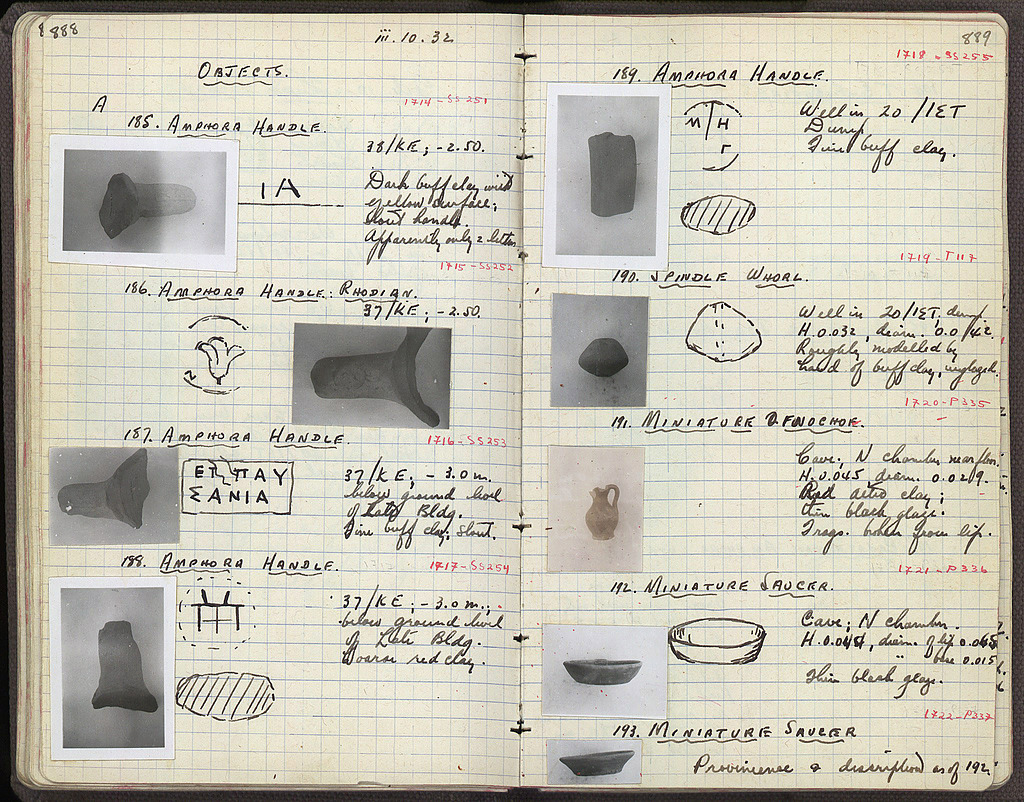 888
iii.10.32
OBJECTS.
A
1714 - SS251
185. AMPHORA HANDLE.
38/KE; -2.50.
IA
Dark buff clay with
yellow surface;
stout handle.
Apparently only 2 letters.
1715 - SS252
186. AMPHORA HANDLE: RHODIAN.
37/KE; -2.50.
187. AMPHORA HANDLE.
1716 - SS253
ΕΠ ΠΑΥ
ΣΑΝΙΑ
37/KE; -3.0 m.
below ground level
of Late Bldg.
Fine buff clay; stout.
188. AMPHORA HANDLE.
1717 - SS254
37/KE; -3.0 m.;
below ground level
of Late Bldg.
Coarse red clay.
889
1718 - SS255
189. AMPHORA HANDLE.
M H
Γ
Well in 20/ΙΣΤ
Dump
Fine buff clay.
1719 - T117
190. SPINDLE WHORL.
Well in 20/ΙΣΤ; dump.
H. 0.032, diam. 0.042.
Roughly modelled by
hand of buff clay, unglazed.
1720 - P335
191. MINIATURE OENOCHOE.
Cave; N chamber near floor.
H. 0.045, diam. 0.029.
Red Attic clay;
thin black glaze.
Frags. broken from lip.
1721 - P336
192. MINIATURE SAUCER.
Cave; N chamber.
H. diam. of lip
" base 0.015
Thin black glaze.
1722 - P337
193. MINIATURE SAUCER
Provinience & description as of 192.